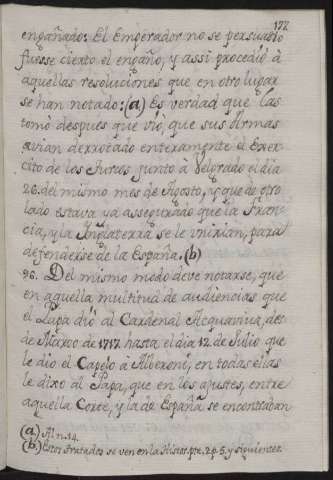 177
engañado: El Emperador no se persuadió
fuesse cierto el engaño, y assi procedió à
aquellas resoluciones que en otro lugar
se han notado: (a) Es verdad que las
tomò despues que viò, que sus Armas
avian derrotado enteramente el Exer-
cito de los Turcos junto à Velgrado el dia
26. del mismo mes de Agosto, y que de otro
lado estava yà assegurado que la Fran-
cia, y la Inglaterra se le unirían, para
defenderse de la España. (b)
96. Del mismo modo deve notarse, que
en aquella multitud de audiencias que
el Papa diò al Cardenal Acquaviva, des-
de Marzo de 1717 hasta el dia 12 de Julio que
le diò el Capelo à Alberoni, en todas ellas
le dixo al Papa, que en los ajustes, entre
aquella Corte, y la de España se encontraban
(a) Al n. 14.
(b) Estos tratados se ven en la Histor. pte. 2. p. 5. y siguientes.